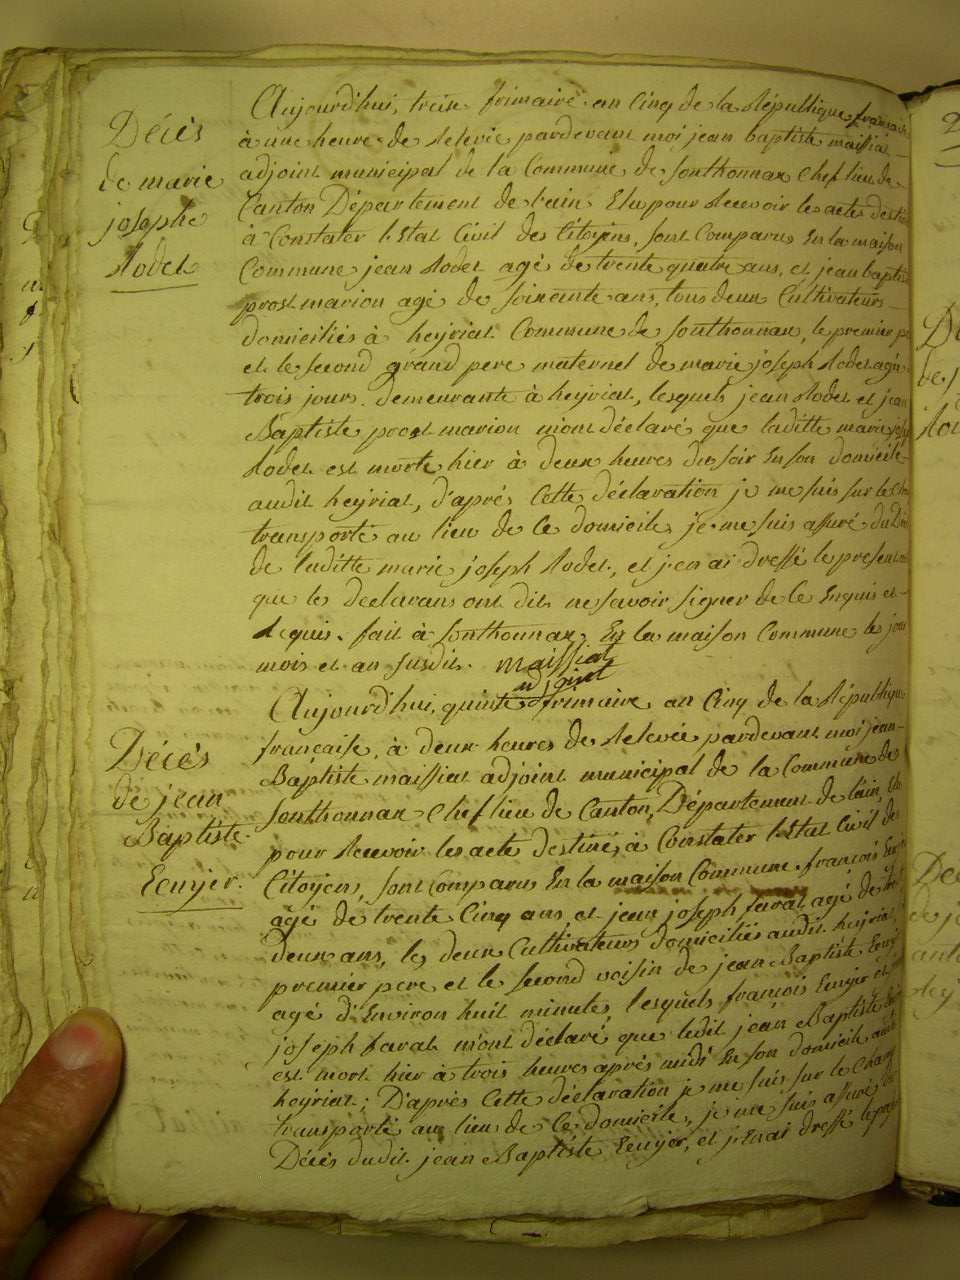 Décés
de marie
josephe
Rodet
Aujourd'hui, treise frimaire an Cinq de la République française
à une heure de Relevée pardevant moi jean baptiste maissiat
adjoint municipal de la Commune de Sonthonnax Chef lieu de
Canton Département de l'ain Elu pour Recevoir les actes destiné
à Constater l'Etat Civil des Citoyens, sont Comparus En la maison
Commune jean Rodet agé de trente quatre ans, et jean baptiste
prost marion agé de soixante ans, tous deux Cultivateurs
domiciliés à heyriat Commune de Sonthonnax, le premier pere
et le second grand pere maternel de marie joseph Rodet agée
trois jours demeurante à heyriat, lesquels jean Rodet et jean
Baptiste prost marion m'ont déclaré que laditte marie joseph
Rodet est morte hier à deux heures du soir En son domicile
audit heyriat, d'aprés Cette déclaration je me suis sur le Champ
transporté au lieu de Ce domicile, je me suis assuré du Décés
de laditte marie joseph Rodet, et j'en ai dressé le present
que les declarans ont dit ne savoir signer de Ce Enquis et
Requis. fait à Sonthonnax En la maison Commune les jour
mois et an susdit. Maissiat
adjoint
Décés
de jean
Baptiste
Ecuyer.
Aujourd'hui, quinte frimaire an Cinq de la République
française, à deux heures de Relevée pardevant moi jean
Baptiste maissiat adjoint municipal de la Commune de
Sonthonnax Chef lieu de Canton, Département de l'ain, Elu
pour Recevoir les acte destiné, à Constater l'Etat Civil des
Citoyens, sont Comparus En la maison Commune françois Ecuyer
agé de trente Cinq ans, et jean joseph favat agé de
deux ans, les deux Cultivateurs domiciliés audit heyriat,
premier pere et le second voisin de jean Baptiste Ecuyer
agé d'Environ huit minute, lesquels françois Ecuyer et
joseph favat m'ont déclaré que ledit jean Baptiste
est mort hier à trois heures aprés midi En son domicile audit
heyriat; D'aprés Cette déclaration je me suis sur le Champ
transporté au lieu de Ce domicile, je me suis assuré du
Décés dudit jean Baptiste Ecuyer, et j'En ai dressé le present